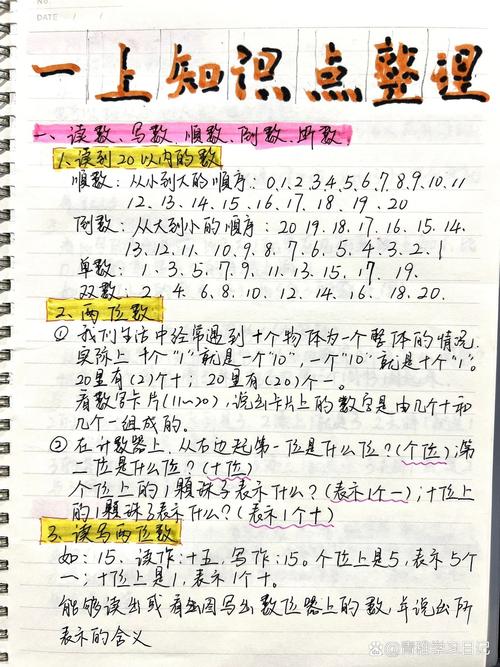 No.
DATE / /
一上知识点整理
一、读数、写数、顺数、例数、单数
1、读到20以内的数
顺数：从小到大的顺序：0、1、2、3、4、5、6、7、8、9、10、11
12、13、14、15、16、17、18、19、20
例数：从大到小的顺序：20 19、18、17、16、15、14、
13、12、11、10、9、8、7、6、5、4、3、2、1
单数：1、3、5、7、9、11、13、15、17、19、
双数：2、4、6、8、10、12、14、16、18、20、
2、两位数
① 我们生活中经常遇到十个物体为一个整体的情况.
实际上十个"1"就是一个"10"，一个"10"就是十个"1"。
20里有(2)个十；20里有(20)个一。
看数字卡片(11~20)，说出卡片上的数字是由几个十和
几个一组成的。
② 在计数器上，从右边起第一位是什么位？(个位)；第
二位是什么位？(十位)
个位上的1颗珠子表示什么？(表示1个一)；十位上
的1颗珠子表示什么？(表示1个十)
3、读写两位数
如：15、读作：十五，写作：15。个位上是5，表示5个
一；十位上是1，表示1个十。
能够读出或看图写出数位器上的数，并说出所
表示的含义
青稚学习日记